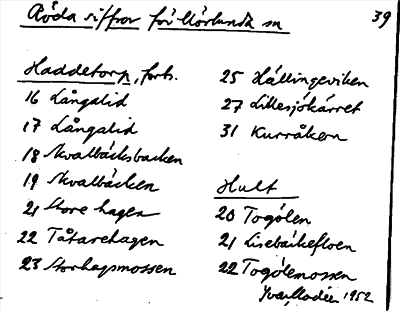 Röda siffror för Mörlunda sn
39
Haddetorp, forts.
16 Långalid
17 Långalid
18 Kvalbäcksbacken
19 Kvalbäcken
21 Store hagen
22 Tåtarehagen
23 Storhagsmossen
25 Hällingeviken
27 Lillesjökärret
31 Kurråkern
Hult
20 Togölen
21 Lisebäckefloen
22 Togölemossen
Ivar Modéer 1952